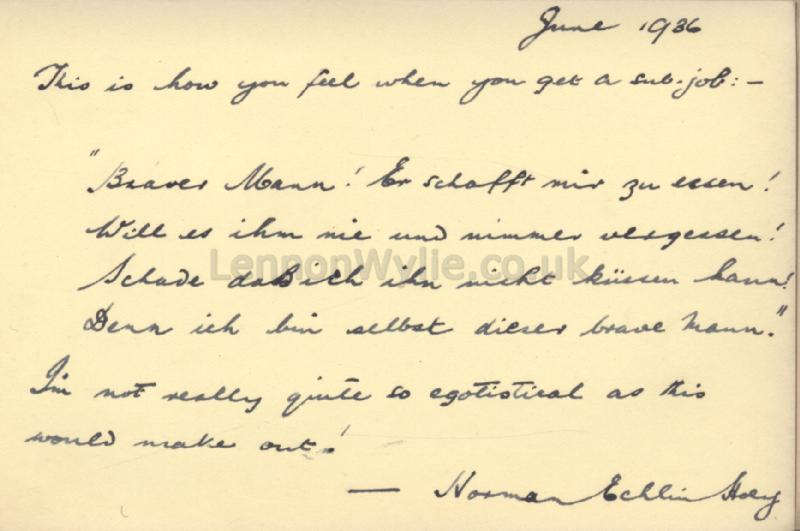 June 1936
This is how you feel when you get a sub-job:—
"Braver Mann! Er schafft mir zu essen!
Will es ihm nie und nimmer vergessen!
Schade daß ich ihn nicht küssen kann!
Denn ich bin selbst dieser brave Mann."
I'm not really quite so egotistical as this
would make out!
— Norman Echlin
LennonWylie.co.uk